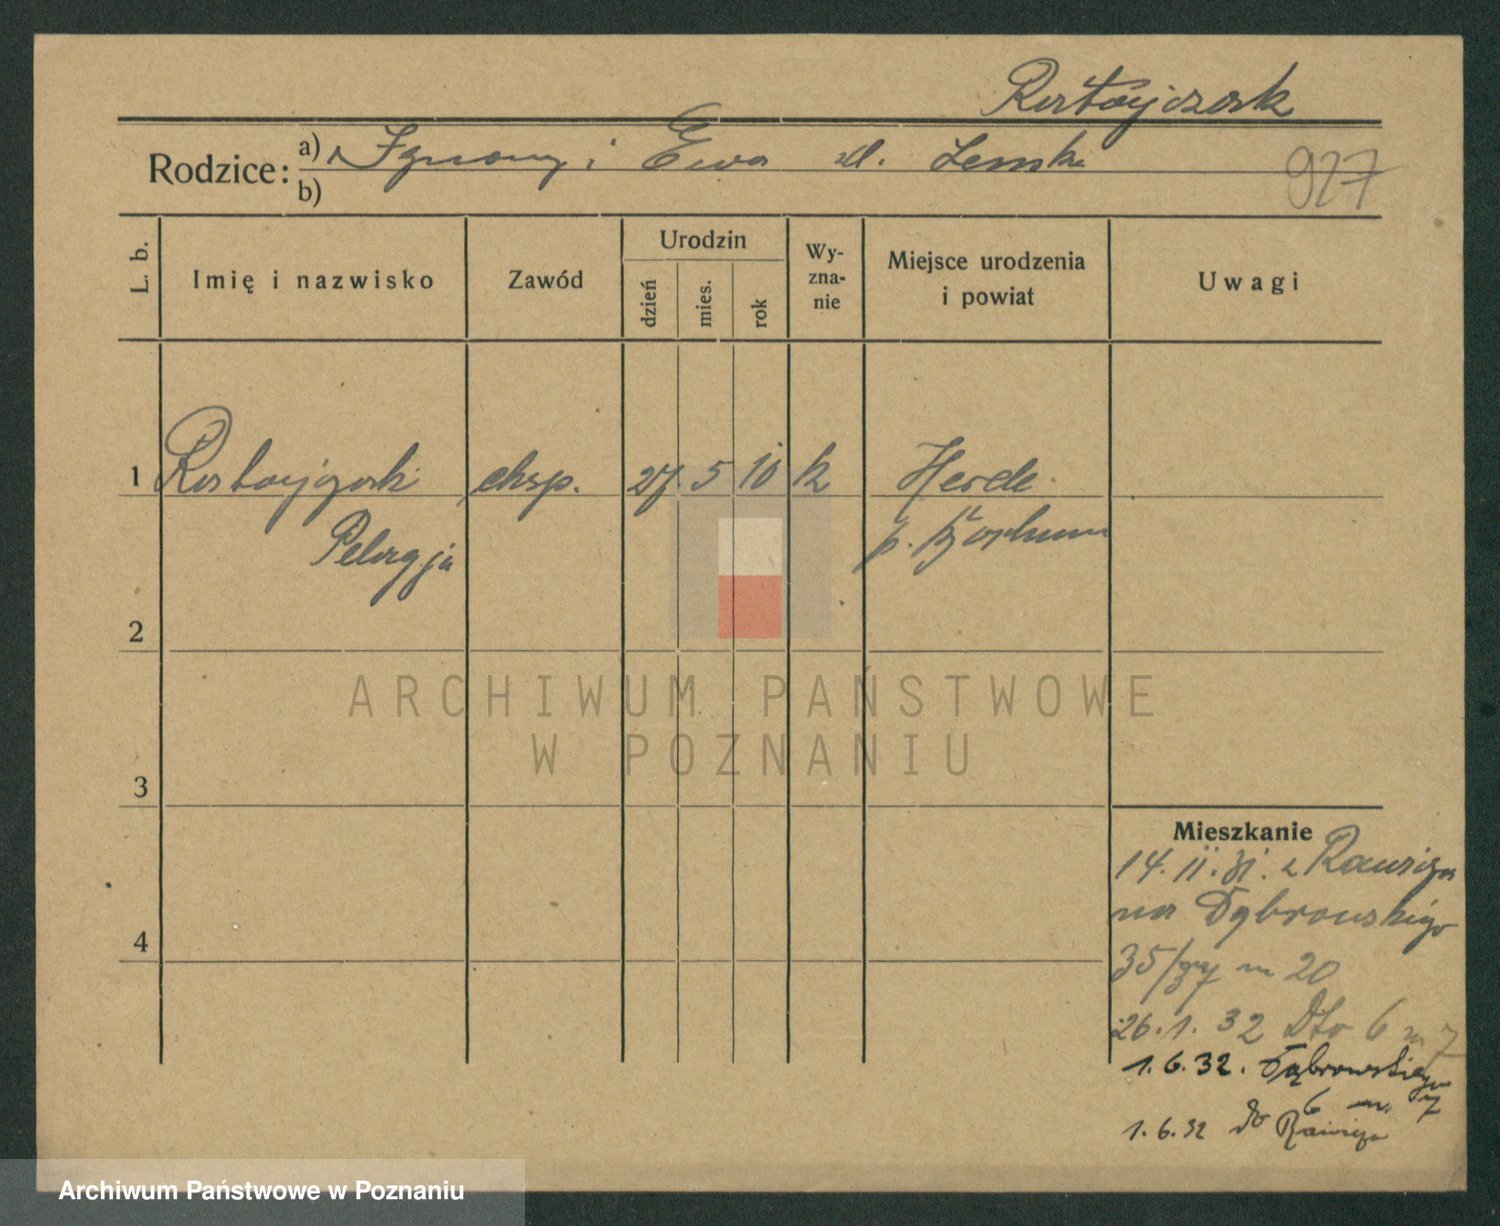 Ratajczak
Rodzice: a) Ignacy i Ewa zd. Lemski
b)
927
L. b.
Imię i nazwisko
Zawód
Urodzin
dzień
mies.
rok
Wy-
zna-
nie
Miejsce urodzenia
i powiat
Uwagi
1 Ratajczak eksp. 27 5 10 k Herde
Pelagja p. Bochum
2
3
4
Mieszkanie
14. II. 31. z Rawicza
na Dąbrowskiego
35/37 m 20
26. 1. 32 Dto 6 m 7
1. 6. 32. Dąbrowskiego
6 m. 7
1. 6. 32 do Rawicza
ARCHIWUM PAŃSTWOWE
W POZNANIU
Archiwum Państwowe w Poznaniu